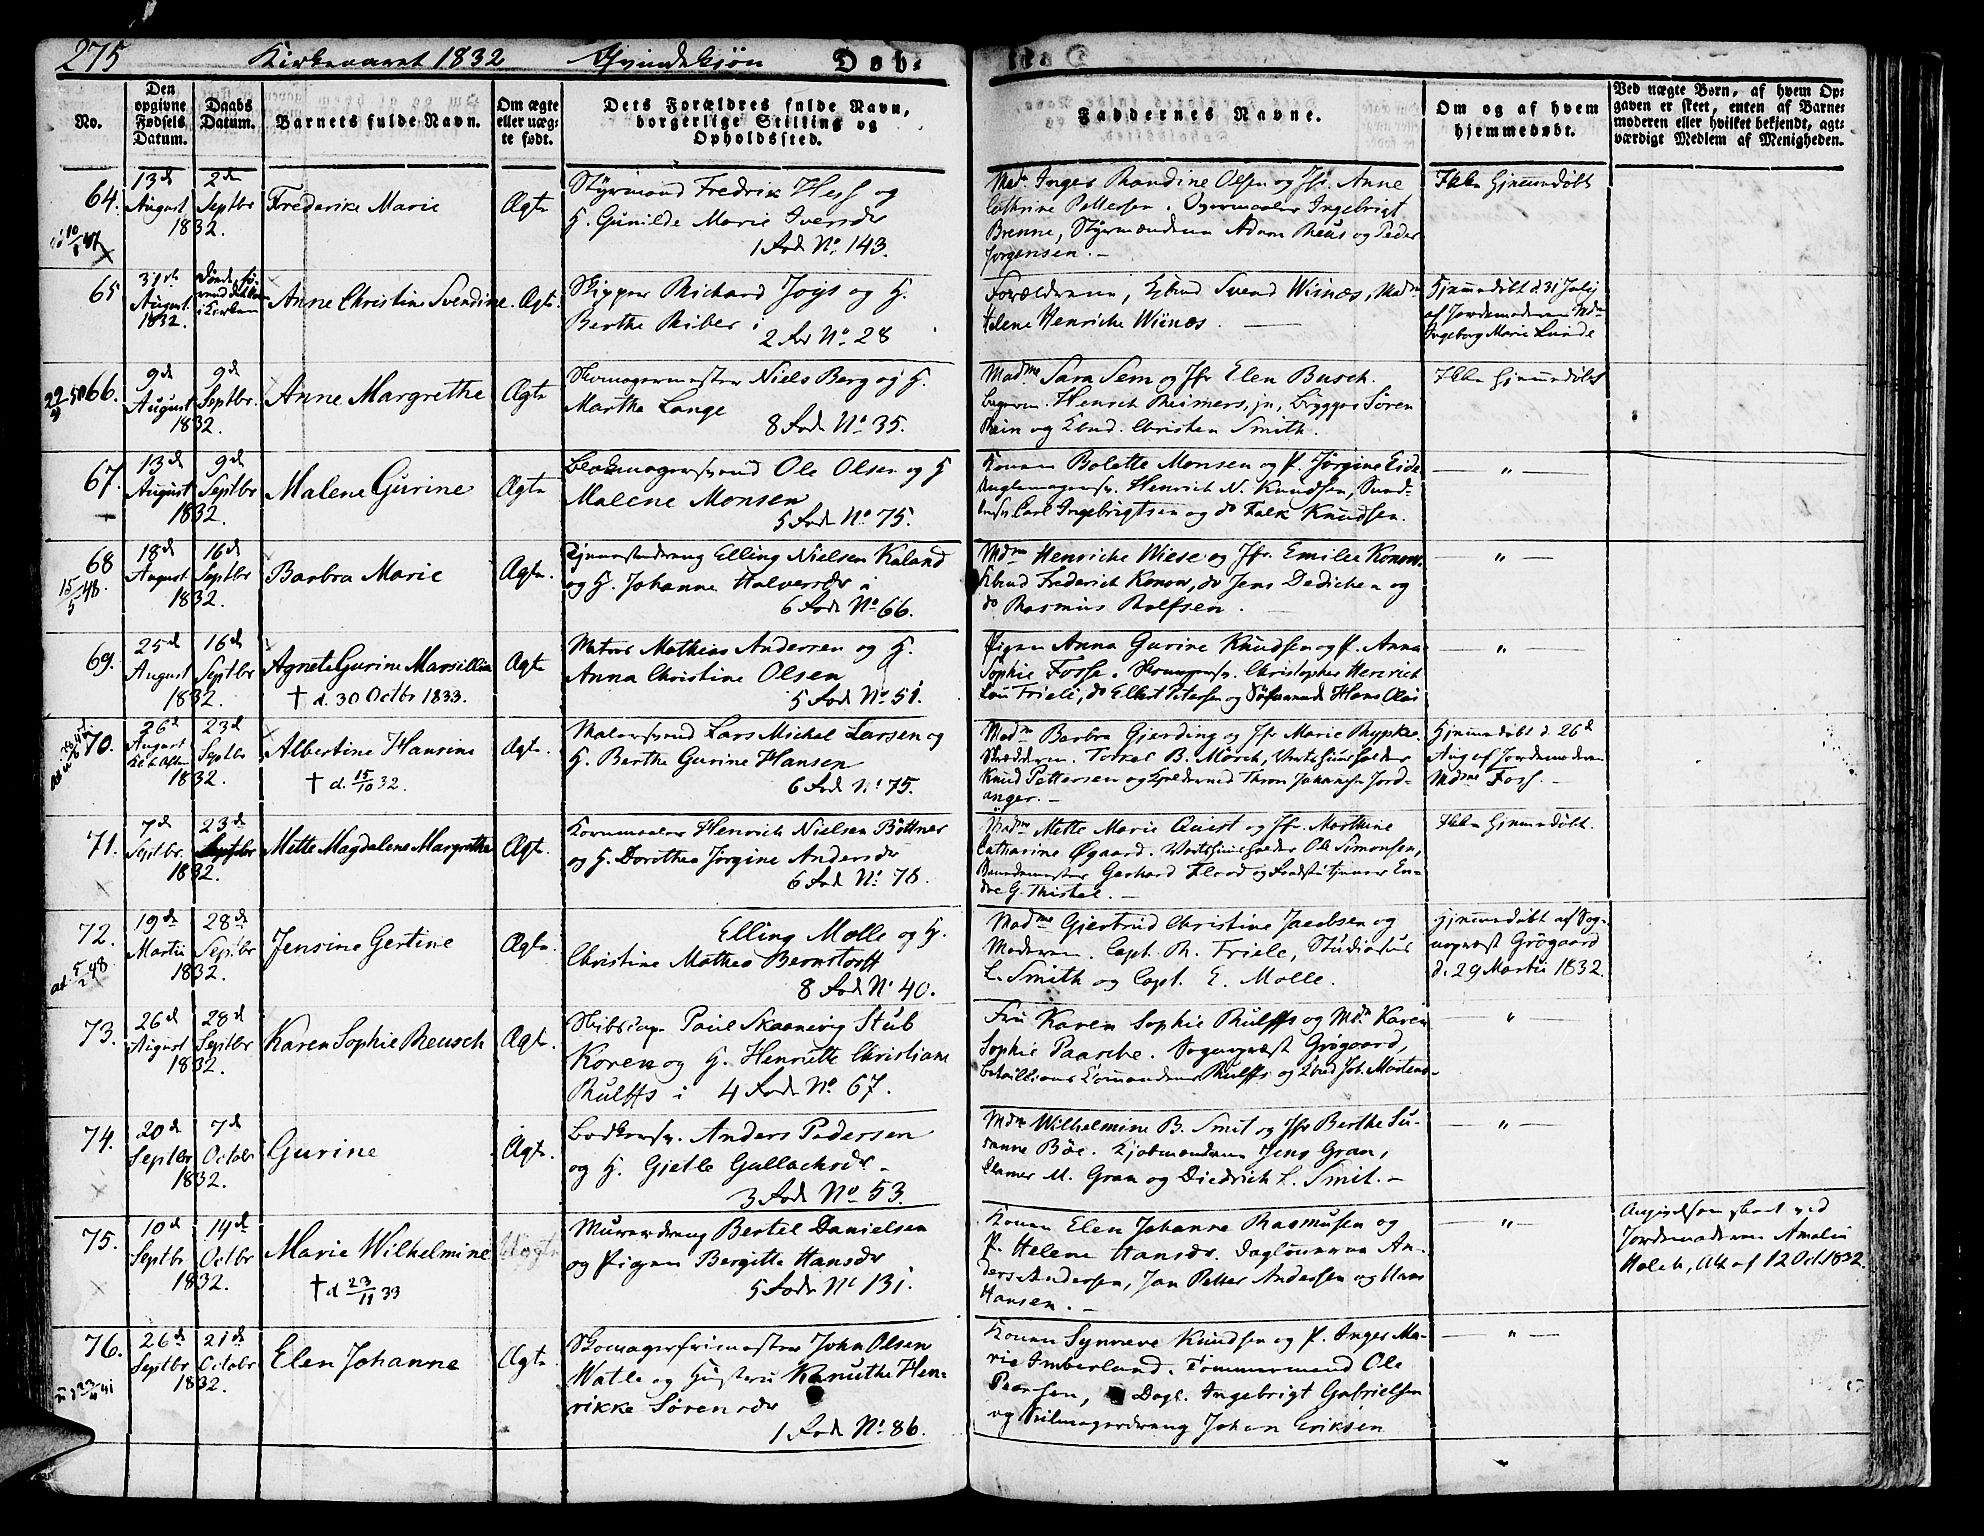 275 Kirkeaaret 1832 Qvindekjøn Døb-
No.
Den opgivne Fødsels Datum.
Daabs Datum.
Barnets fulde Navn.
Om ægte eller uæg- te født.
Dets Forældres fulde Navn, borgerlige Stilling og Opholdssted.
Faddernes Navne.
Om og af hvem hjemmedøbt.
Ved uægte Børn, af hvem Op- gaven er skeet, enten af Barne- moderen eller hvilket bekjendt, agt- værdigt Medlem af Menigheden.
64. 13de August 1832. 2den Septbr Frederike Marie Ægte
Styrmand Fredrik Hess og
H. Gunilde Marie Iversdr
1 Rode No. 143.
Mad. Inger Randine Olsen og Jfr. Anne
Cathrine Pettersen. Ingebrigt
Brenne, Styrmændene Adam Reus og Peder
Jørgensen.
Ikke Hjemmedøbt
65 31te August 1832. i Kirken Anne Christine Svendine. Ægte.
Skipper Richard Joys og H.
Berthe Riber i
2 Rode No. 28
Forældrene, Svend Wiinæs, Madme
Helene Henriche Wiinæs.
Hjemmedøbt d. 31 July
af Jordemoderen Mdme
Ingeborg Marie Lunde
66. 9de August 1832. 9de Septbr. Anne Margrethe Ægte
Skomagermester Niels Berg og H.
Marthe Lange
8 Rode No. 35.
Madme Sara Sem og Jfr Elen Busch.
Henrich Reimers, jn, Brygger Søren
Rein og Christen Smith.
Ikke Hjemmedøbt
67. 13de August 1832. 9de Septbr Malene Gurine Ægte
Blokmagersvend Ole Olsen og H
Malene Monsen
5 Rode No. 75.
Konen Bolette Monsen og P. Jørgine Eide
Henrich N. Knudsen,
Carl Ingebrigtsen og do Falk Knudsen.
— " —
68 15/5 48. 18de August 1832. 16de Septbr Barbra Marie Ægte.
Elling Nielsen Kaland
og H. Johanne Halversdr i
6 Rode No. 66.
Mdme Henriche Wiese og Jfr. Emilie Konow.
Frederich Konow, do Jens Dedichen og
do Rasmus Rolfsen.
— " —
69. 25de August 1832. 16de Septbr Agnete Gurine Marsillia Ægte
† d. 30 Octbr 1833.
Matros Mathias Andersen og H.
Anna Christine Olsen
5 Rode No. 51.
Pigen Anna Gurine Knudsen og P. Anna
Sophie Fosse. Christopher Henrich
Friele, do Elbert Petersen og Hans Olai
— " —
70. 26de August 1832. 23de Septbr Albertine Hansine Ægte.
† d. 15/10 32.
Malersvend Lars Michel Larsen og
H. Berthe Gurine Hansen
6 Rode No. 75.
Madme Barbra Gjerding og Jfr Marie Rypke.
Torkel B. Mørch, Vertshuusholder
Knud Pettersen og Johannesen Jord-
anger.
Hjemmedøbt d. 26de
Aug af Jordemoderen
Mdme Foss.
71. 7de Septbr. 1832. 23de Septbr Mette Magdalene Margrethe Ægte.
Kornmaaler Henrich Nielsen Bøttner
og H. Dorothea Jørgine Andersdr
6 Rode No. 78.
Madme Mette Marie Quist og Jfr. Marthine
Catharine Øgaard. Vertshuusholder Ole Simonsen,
Gerhard Flood og
G. Thistel.
Ikke Hjemmedøbt.
72. 5/2 48 19de Martii 1832. 28de Septbr Jensine Gertine Ægte.
Elling Molle og H.
Christine Mathea Bernstorff
8 Rode No. 40.
Madme Gjertrud Christine Jacobsen og
Moderen. Capt. R. Friele, Studiosus
L. Smith og Capt. E. Molle.
Hjemmedøbt af Sog-
nepræst Grøgaard
d. 29 Martii 1832.
73. 26de August 1832. 28de Septbr Karen Sophie Reusch Ægte.
Skibscap. Paul Skaanevig Stub
Koren og H. Henriette Christiane
Rulffs i 4 Rode No. 67.
Fru Karen Sophie Rulffs og Mdm Karen
Sophie Paasche. Sognepræst Grøgaard,
Rulffs og Joh. Mortens-
— " —
74. 20de Septbr 1832. 7de Octobr Gurine Ægte.
Bødkersv. Anders Pedersen
og H. Gjetle Gullachsdr.
3 Rode No. 53.
Mdme Wilhelmine B. Smit og Jfr Berthe Su-
sanne Böe. Kjøbmændene Jens Gran,
M. Gran og Diedrich L. Smit.
— " —
75. 10de Septbr 1832. 14de Octbr Marie Wilhelmine Uægte
† d 23/11 33
Murerdreng Bertel Danielsen
og Pigen Bergitte Hansdr
5 Rode No 131.
Konen Elen Johanne Rasmusen og
P. Helene Hansdr. Daglønnerne An-
ders Andersen, Jan Petter Andersen og Hans
Hansen.
— " —
Angivelsen skeet ved
Jordemoderen Amalia
Holck, Att af 12 Oct 1832.
76. 26de Septbr 1832. 21de Octobr Elen Johanne Ægte.
Skomagerfrimester John Olsen
Watle og Hustru Knuthe Hen-
rikke Sørensdr
1 Rode No. 86.
Konen Synneve Knudsen og P. Inger Ma-
rie Imberland. Tømmermand Ole
Peersen, Dagl. Ingebrigt Gabrielsen
og Seilmagerdreng Johan Eriksen
— " —